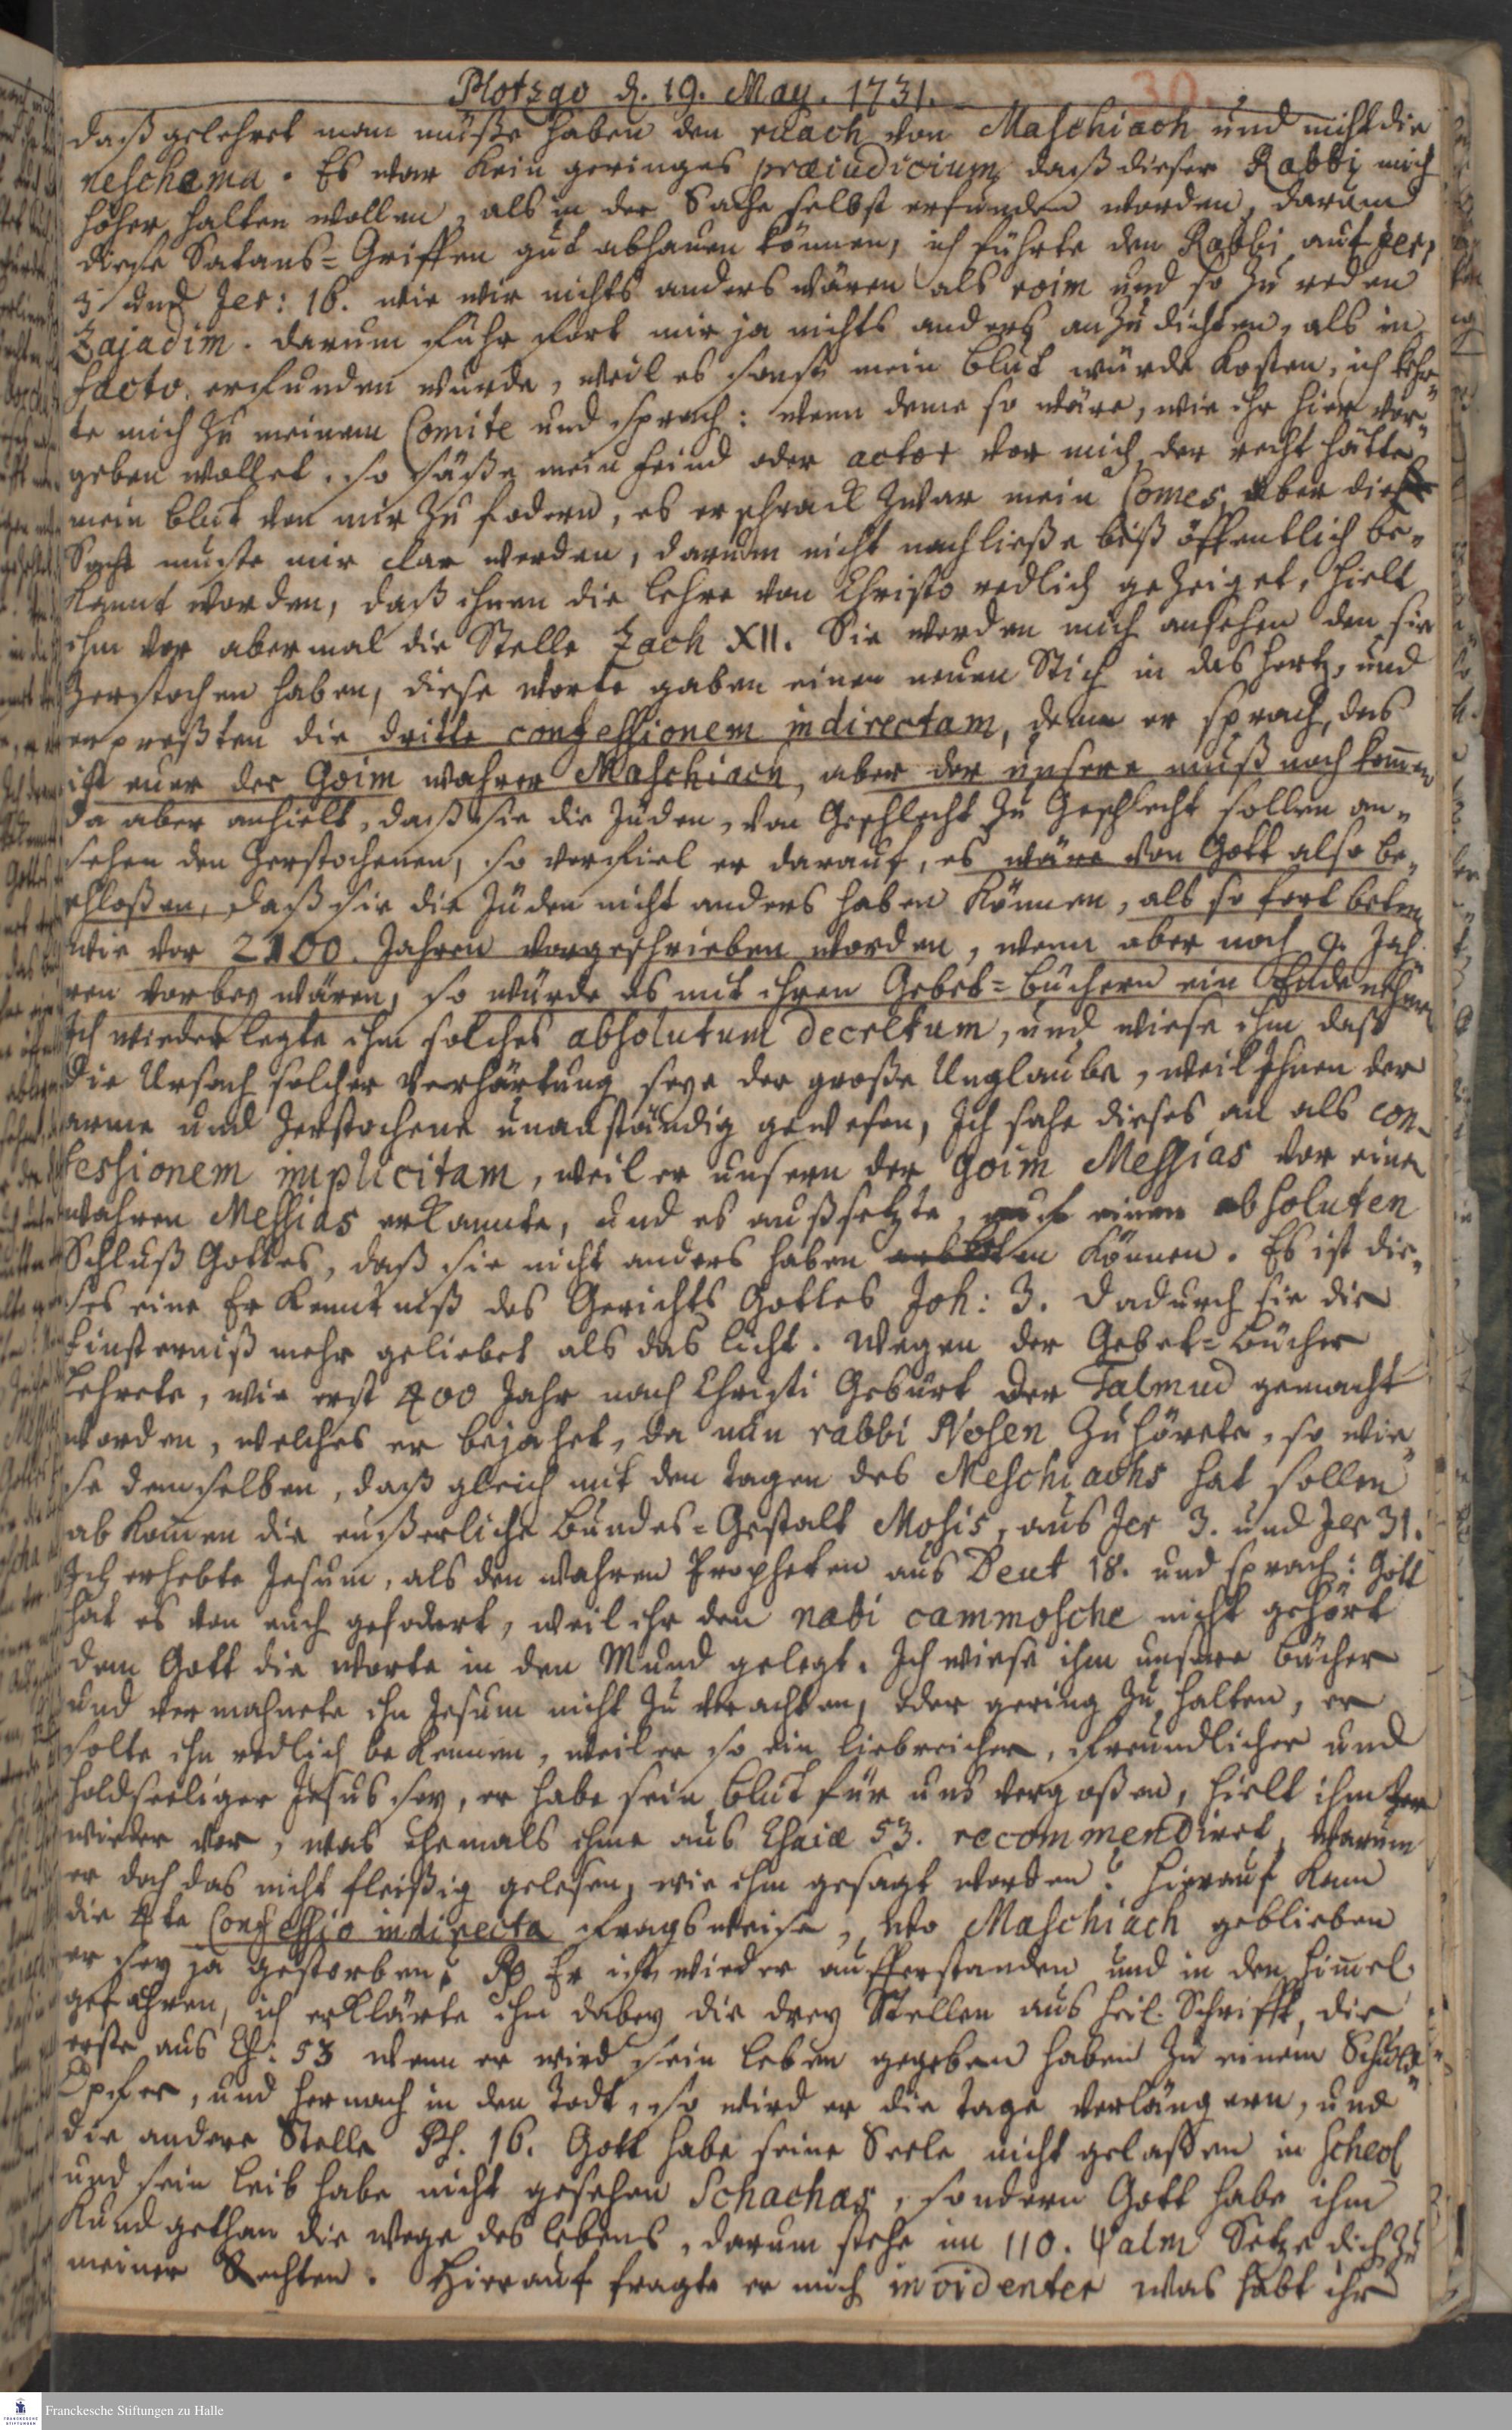 Plotzgo d. 19. May. 1731.
30.
daß gelehret man müße haben den ruach von Maschiach und nicht die
neschama. Es war kein geringes praeiudicium, daß dieser Rabbi mich
höher halten wollen, als in der Sache selbst erfunden worden, darum
diese Satans=Griffen gut abhauen können, ich führte den Rabbi auf Jer,
3 und Jer: 16. wie wir nichts anders wären als roim und so zu reden
Zajadim. darum fuhr fort mir ja nichts anders anzudichten, als in
facto erfunden wurde, weil es sonst mein blut würde kosten, ich keh-
te mich zu meinem Comite und sprach: wenn deme so wäre, wie ihr hier vor-
geben wollet, so säße mein feind oder actor vor mich, der recht hätte
mein blut von mir zu fodern, es erschrack zwar mein Comes, aber diese
Sache muste mir clar werden, darum nicht nachließe biß öffentlich be-
kannt worden, daß ihnen die lehre von Christo redlich gezeiget, hielt
ihm vor abermal die Stelle Zach XII. Sie werden mich ansehen den sie
zerstochen haben, diese worte gaben einen neuen Stich in das hertz, und
erpreßten die dritte confessionem indirectam, denn er sprach, das
ist euer der Goim wahrer Maschiach, aber der unsere muß noch kommen
da aber anhielt, daß sie die Juden, von Geschlecht zu Geschlecht sollen an-
sehen den zerstochenen, so verfiel er darauf, es wäre von Gott also be-
schloßen, daß sie die Juden nicht anders haben können, als so fort beten
wie vor 2100. Jahren vorgeschrieben worden, wenn aber noch 9. Jah-
ren vorbey wären, so würde es mit ihren Gebet=büchern ein Ende nehmen
Ich wiederlegte ihm solches absolutum decretum, und wiese ihm daß
die Ursach solcher Verhärtung seye der große Unglaube, weil Ihnen der
arme und zerstochene unanständig gewesen, Ich sahe dieses an als con-
fessionem implicitam, weil er unsern der Goim Messias vor einen
wahren Messias erkannte, und es außsetzte, auf einen absoluten
Schluß Gottes, daß sie nicht anders haben können. Es ist die-
ses eine Erkenntniß des Gerichts Gottes Joh: 3. dadurch sie die
finsterniß mehr geliebet als das licht. Wegen der Gebet=bücher
lehrete, wie erst 400 Jahr nach Christi Geburt der Talmud gemacht
worden, welches er bejahet, da nun rabbi Nosen zuhörete, so wie-
se demselben, daß gleich mit den tagen des Meschiachs hat sollen
abkommen die eußerliche bundes=Gestalt Mosis, aus Jer 3. und Jer 31.
Ich erhebte Jesum, als den wahren Propheten aus Deut 18. und sprach: Gott
hat es von euch gefodert, weil ihr den nabi cammosche nicht gehört
dem Gott die worte in den Mund gelegt. Ich wiese ihm unsere bücher
und vermahnete ihn Jesum nicht zu verachten, oder gering zu halten, er
solte ihn redlich bekennen, weil er so ein liebreicher, freundlicher und
holdseeliger Jesus sey, er habe sein blut für uns vergoßen, hielt ihm
wieder vor, was ehemals ihme aus Esaiae 53. recommendiret, warum
er doch das nicht fleißig gelesen, wie ihm gesagt worden? hierauf kam
die 4te Confessio indirecta fragsweise, wo Maschiach geblieben
er sey ja gestorben? Rp Er ist wieder aufferstanden und in den himmel
gefahren, ich erklärte ihn dabey die drey Stellen aus heil. Schrifft, die
erste aus Es: 53 wenn er wird sein leben gegeben haben zu einem Schuld-
Opfer, und hernach in den todt, so wird er die tage verlängern, und
die andere Stelle Ps. 16. Gott habe seine Seele nicht gelaßen in scheol
und sein leib habe nicht gesehen Schachas, sondern Gott habe ihm
kund gethan die wege des lebens, darum stehe im 110. Psalm Setze dich zu
meiner Rechten. Hierauf fragte er mich invidenter was habt ihr
Franckesche Stiftungen zu Halle